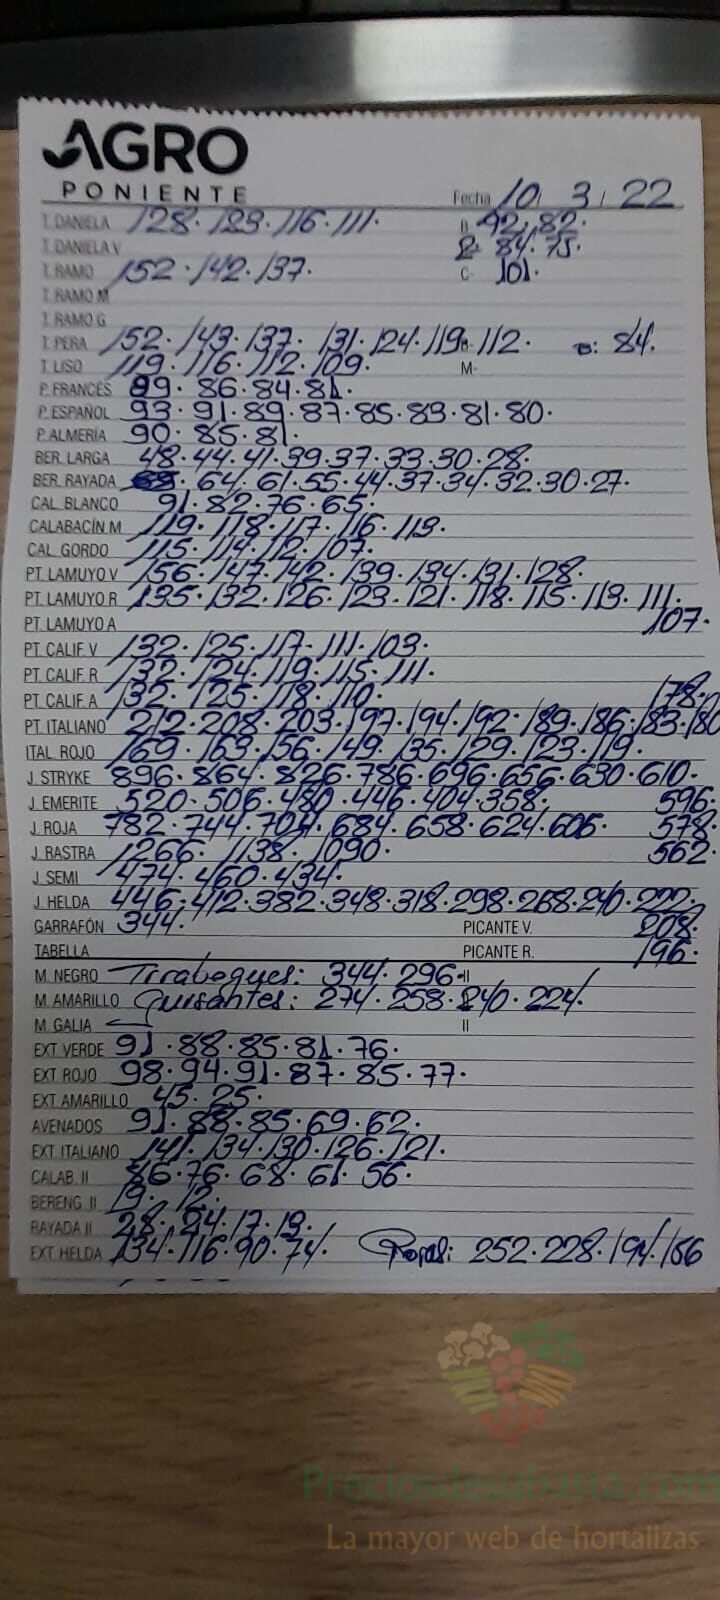 AGRO
PONIENTE
Fecha 10 / 3 / 22
T. DANIELA 128. 123. 116. 111. B- 92. 82.
T. DANELA V 84. 75.
T. RAMO 152. 142. 137. C- 101.
T. RAMO M
T. RAMO G
T. PERA 152. 143. 137. 131. 124. 119. 112. B: 84.
T. LISO 119. 116. 112. 109. M-
P. FRANCÉS 89. 86. 84. 81.
P. ESPAÑOL 93. 91. 89. 87. 85. 83. 81. 80.
P. ALMERÍA 90. 85. 81.
BER. LARGA 48. 44. 41. 39. 37. 33. 30. 28.
BER. RAYADA 64. 61. 55. 44. 37. 34. 32. 30. 27.
CAL. BLANCO 91. 82. 76. 65.
CALABACÍN M 119. 118. 117. 116. 113.
CAL. GORDO 115. 114. 112. 107.
PT. LAMUYO V 156. 147. 142. 139. 134. 131. 128.
PT. LAMUYO R 135. 132. 126. 123. 121. 118. 115. 113. 111.
PT. LAMUYO A 107.
PT. CALIF. V 132. 125. 117. 111. 103.
PT. CALIF. R 132. 124. 119. 115. 111.
PT. CALIF. A 132. 125. 118. 110. 178.
PT. ITALIANO 212. 208. 203. 197. 194. 192. 189. 186. 183. 180
ITAL. ROJO 169. 163. 156. 149. 135. 129. 123. 119.
J. STRYKE 896. 864. 826. 786. 696. 656. 630. 610.
J. EMERITE 520. 506. 480. 446. 404. 358. 596.
J. ROJA 782. 744. 704. 684. 658. 624. 606. 578.
J. RASTRA 1266. 1138. 1090. 562.
J. SEMI 474. 460. 434.
J. HELDA 446. 412. 382. 348. 318. 298. 268. 240. 222.
GARRAFÓN 344. PICANTE V. 208.
TABELLA PICANTE R. 196.
M. NEGRO Tirabeques: 344. 296. II
M. AMARILLO Guisantes: 274. 258. 240. 224.
M. GALIA II
EXT. VERDE 91. 88. 85. 81. 76.
EXT. ROJO 98. 94. 91. 87. 85. 77.
EXT. AMARILLO 45. 25.
AVENADOS 91. 88. 85. 69. 62.
EXT. ITALIANO 141. 134. 130. 126. 121.
CALAB. II 86. 76. 68. 61. 56.
BERENG. II 19. 12.
RAYADA II 28. 24. 17. 13.
EXT. HELDA 134. 116. 90. 74. Rojas: 252. 228. 194. 156
Preciosdesubasta.com
La mayor web de hortalizas